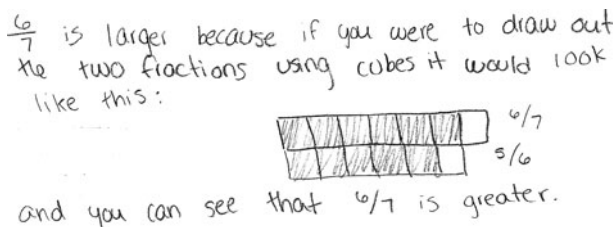 6/7 is larger because if you were to draw out
the two fractions using cubes it would look
like this:
6/7
5/6
and you can see that 6/7 is greater.